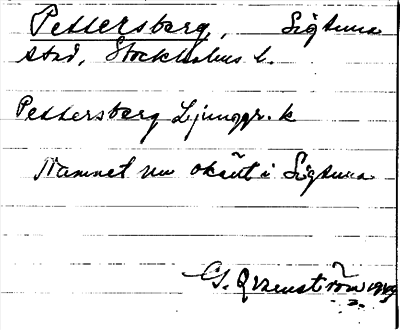 Pettersberg, Sigtuna
stad, Stockholms l.
Pettersberg Ljunggr. k
Namnet nu okänt i Sigtuna
G.